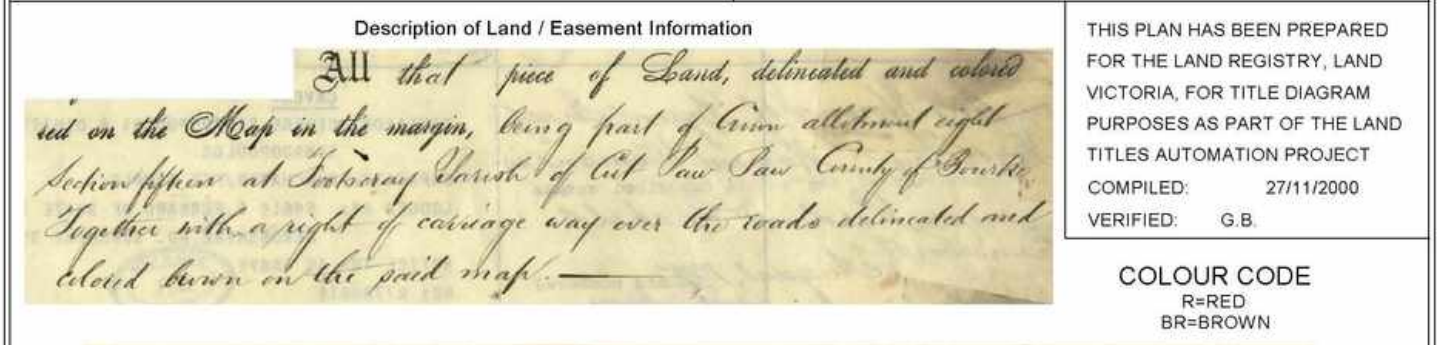 Description of Land / Easement Information
All that piece of Land, delineated and colored
red on the Map in the margin, being part of Crown allotment eight
Section fifteen at Footscray Parish of Cut Paw Paw County of Bourke
Together with a right of carriage way over the roads delineated and
colored brown on the said map.
THIS PLAN HAS BEEN PREPARED
FOR THE LAND REGISTRY, LAND
VICTORIA, FOR TITLE DIAGRAM
PURPOSES AS PART OF THE LAND
TITLES AUTOMATION PROJECT
COMPILED: 27/11/2000
VERIFIED: G.B.
COLOUR CODE
R=RED
BR=BROWN